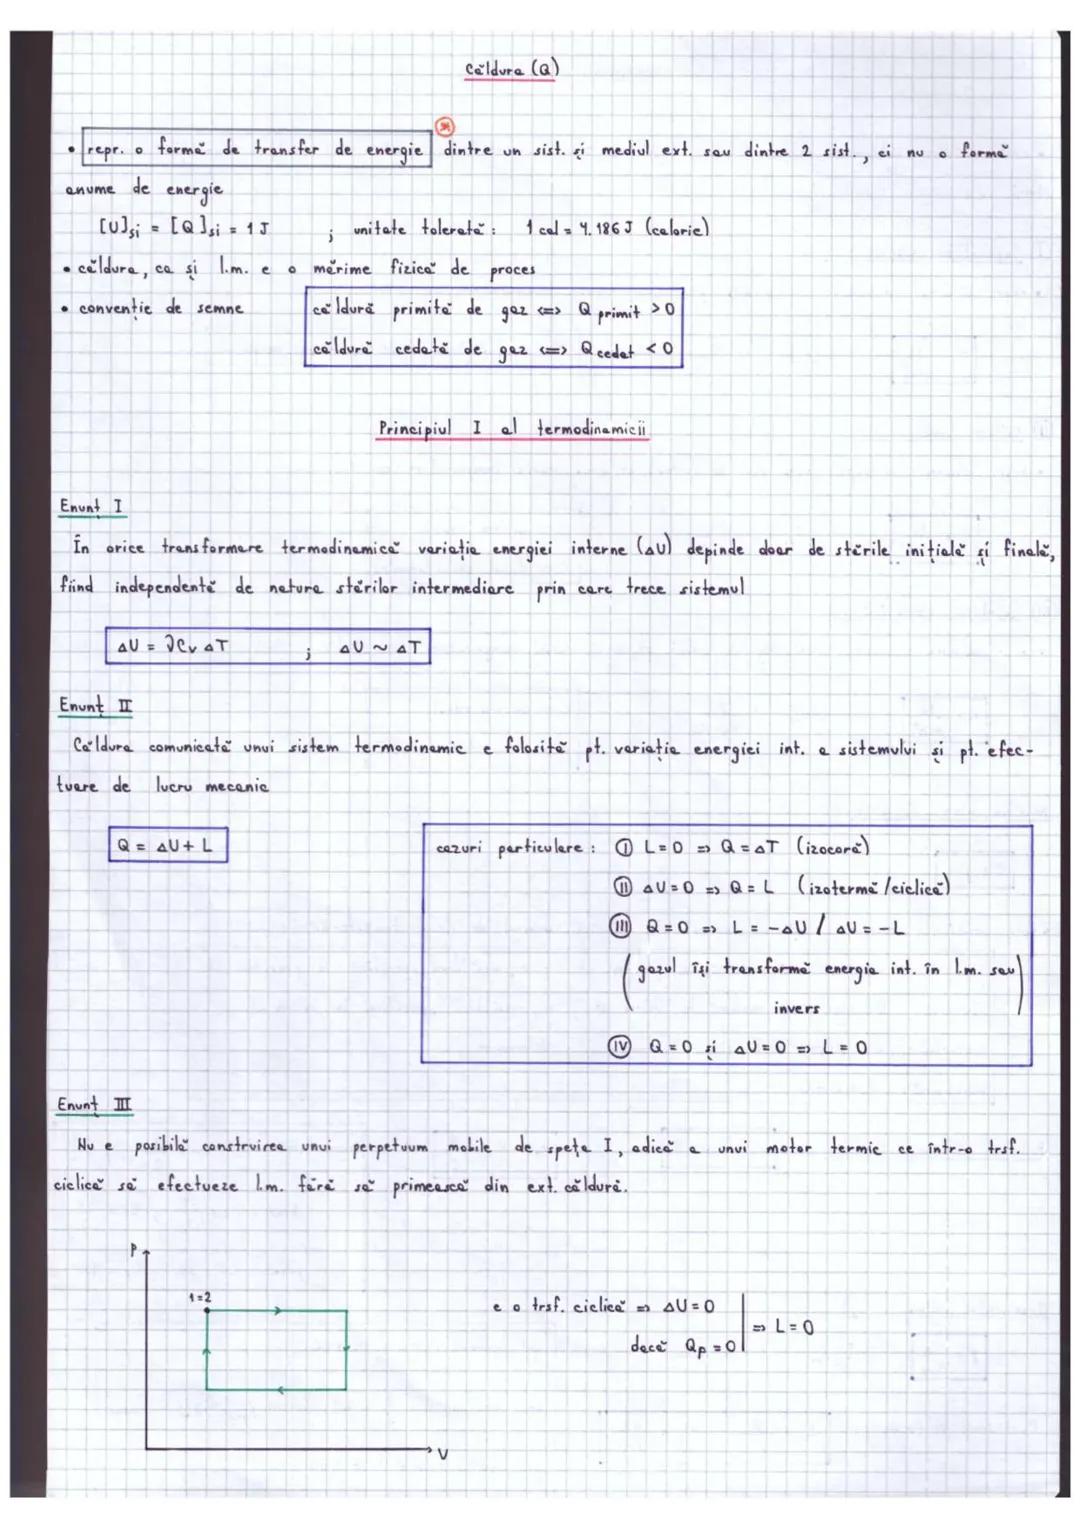 Căldura (Q)
• repr. o formă de transfer de energie dintre un sist. și mediul ext. sau dintre 2 sist., ci nu o formă
anume de energie
[U]si = [Q]si = 1 J ; unitate tolerată : 1 cal = 4.186 J (calorie)
• căldura, ca și l.m. e o mărime fizică de proces
• convenție de semne
căldură primită de gaz <=> Q primit > 0
căldură cedată de gaz <=> Q cedat < 0
Principiul I al termodinamicii
Enunț I
În orice transformare termodinamică variația energiei interne (ΔU) depinde doar de stările inițială și finală,
fiind independentă de natura stărilor intermediare prin care trece sistemul
ΔU = νCv ΔT ; ΔU ~ ΔT
Enunț II
Căldura comunicată unui sistem termodinamic e folosită pt. variația energiei int. a sistemului și pt. efec-
tuare de lucru mecanic
Q = ΔU + L
cazuri particulare : I L = 0 => Q = ΔT (izocoră)
II ΔU = 0 => Q = L (izotermă /ciclică)
III Q = 0 => L = -ΔU / ΔU = -L
(gazul își transformă energia int. în l.m. sau
invers)
IV Q = 0 și ΔU = 0 => L = 0
Enunț III
Nu e posibilă construirea unui perpetuum mobile de speța I, adică a unui motor termic ce într-o trsf.
ciclică să efectueze l.m. fără să primească din ext. căldură.
P
1=2
V
e o trsf. ciclică => ΔU = 0
dacă Qp = 0
=> L = 0